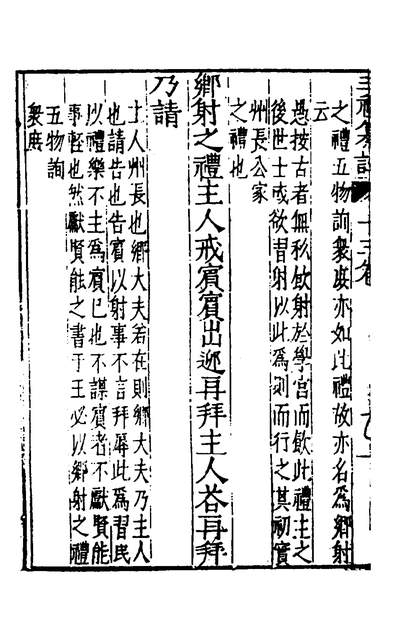 三禮纂註 十三卷
之禮五物詢衆庶亦如此禮故亦名為鄉射
云
愚按古者無私飲射於學宮而飲此禮主之
後世士或欲習射以此為則而行之其初實
州長公家
之禮也
鄉射之禮主人戒賓賓出迎再拜主人荅再拜
乃請
主人州長也鄉大夫若在則鄉大夫乃主人
也請告也告賓以射事不言拜辱此為習民
以禮樂不主為賓已也不謀賓者不獻賢能
事輕也然獻賢能之書于王必以鄉射之禮
五物詢
衆庶